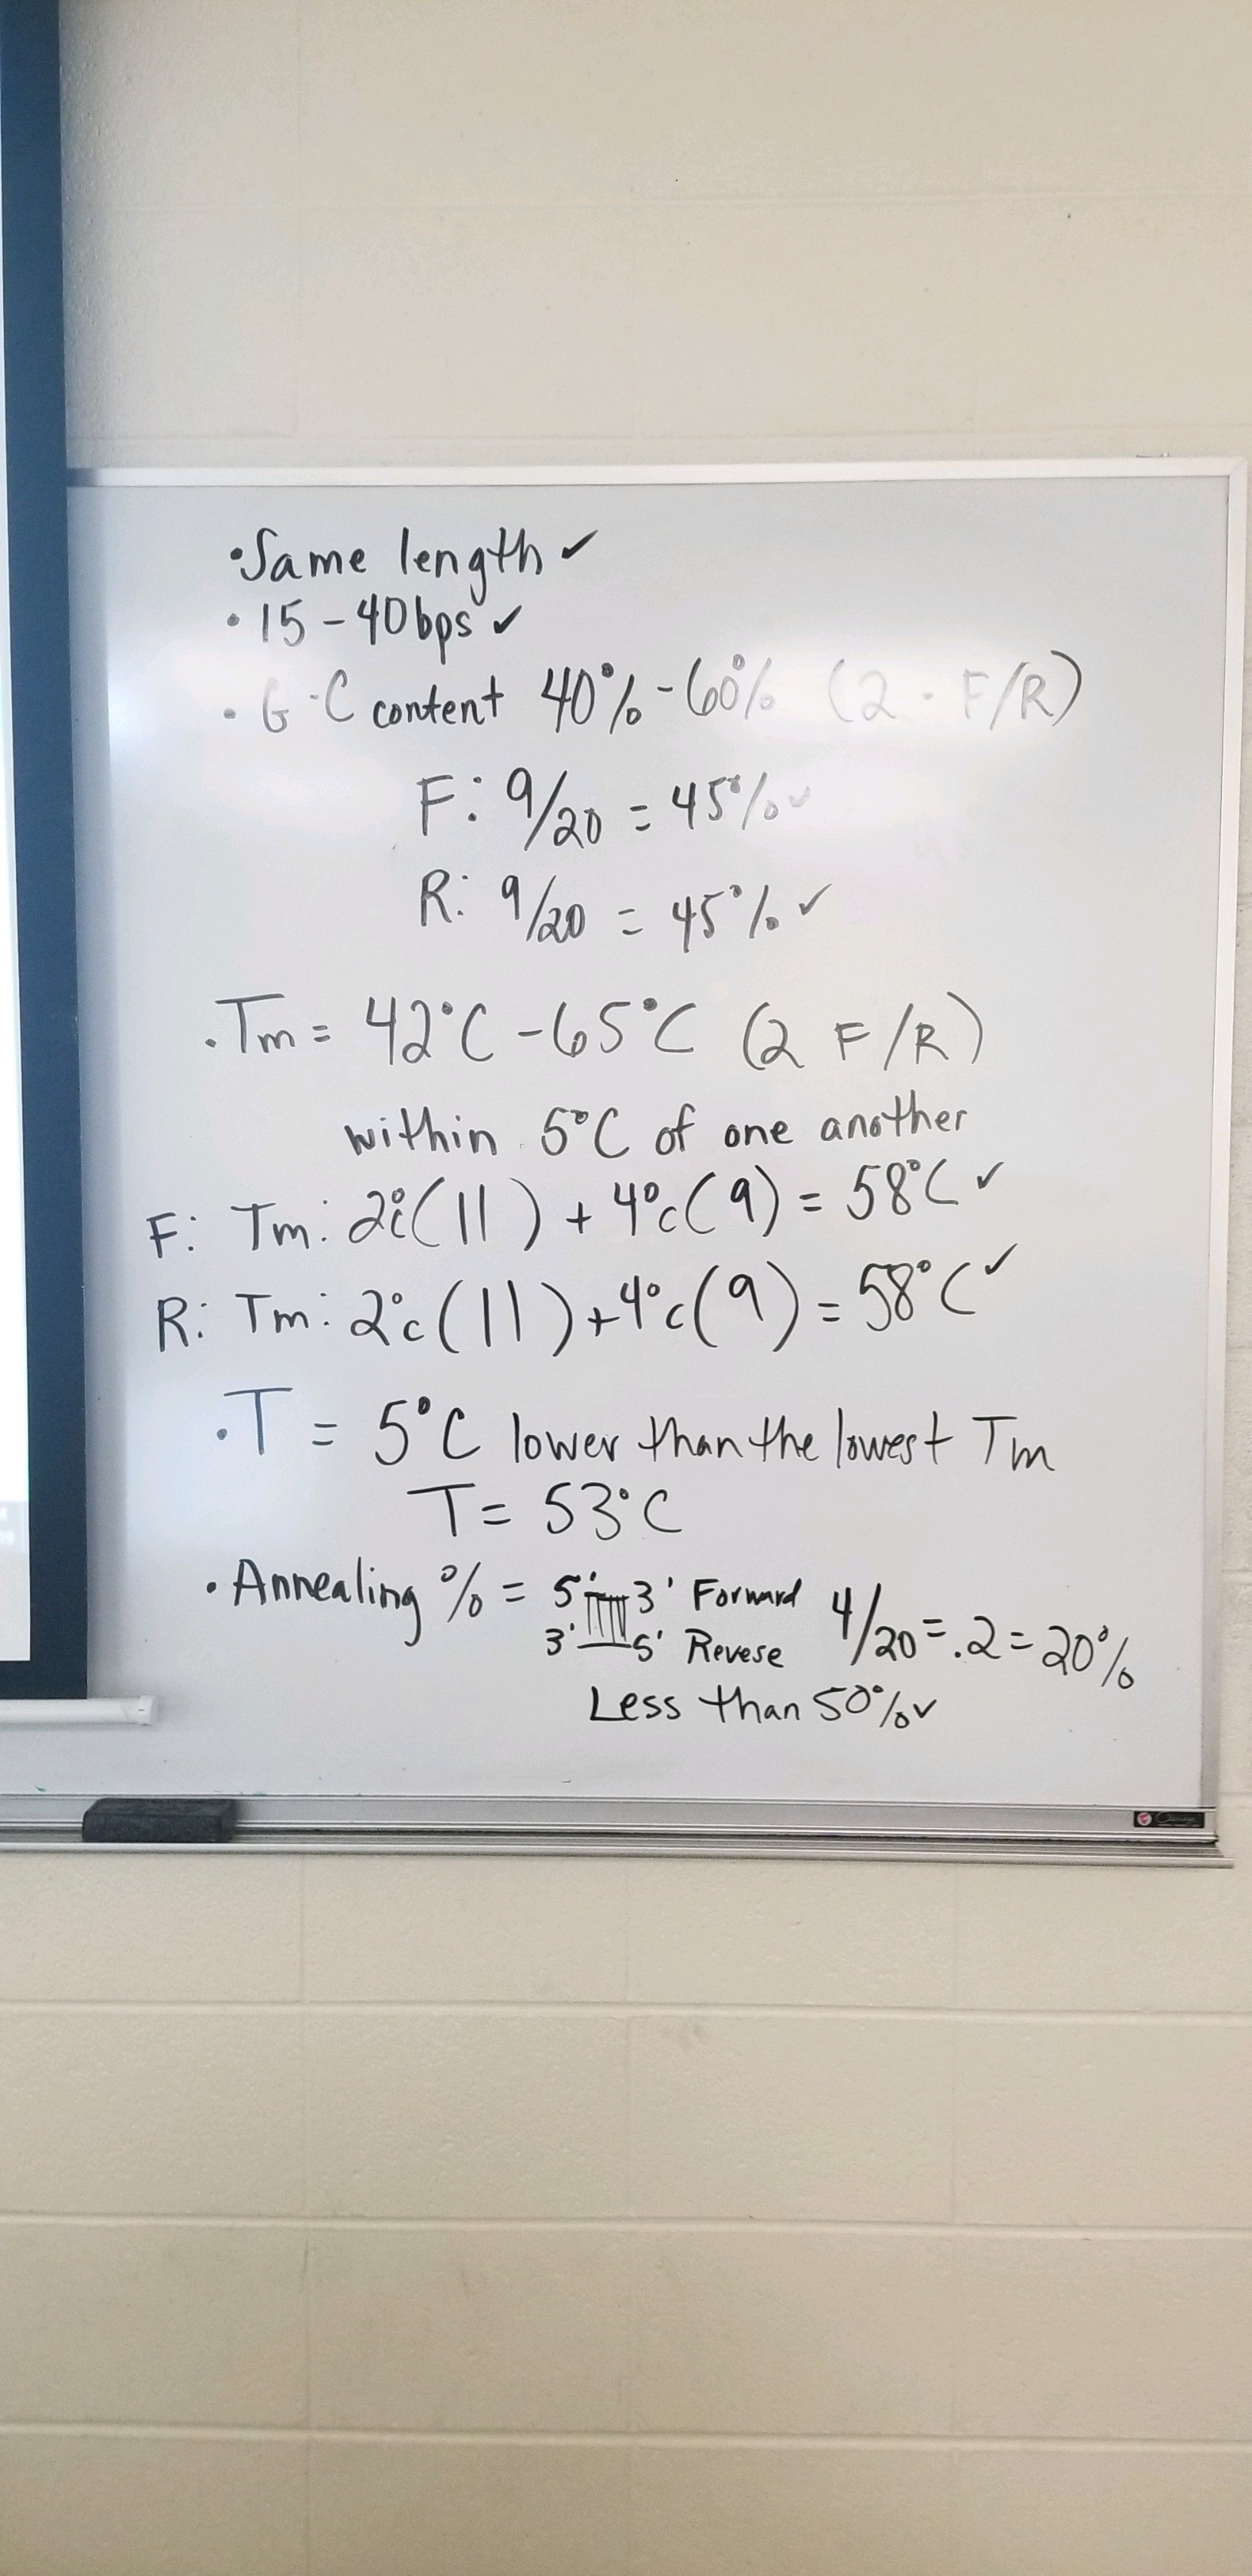 • Same length ✓
• 15-40bps ✓
• G-C content 40%-60% (2 - F/R)
F: 9/20 = 45% ✓
R: 9/20 = 45% ✓
• Tm = 42°C-65°C (2 F/R)
within 5°C of one another
F: Tm: 2°C(11) + 4°C(9) = 58°C ✓
R: Tm: 2°C(11)+4°C(9) = 58°C ✓
• T = 5°C lower than the lowest Tm
T = 53°C
• Annealing % = 5' 3' Forward 4/20 = .2 = 20%
3' 5' Revese
Less than 50% ✓